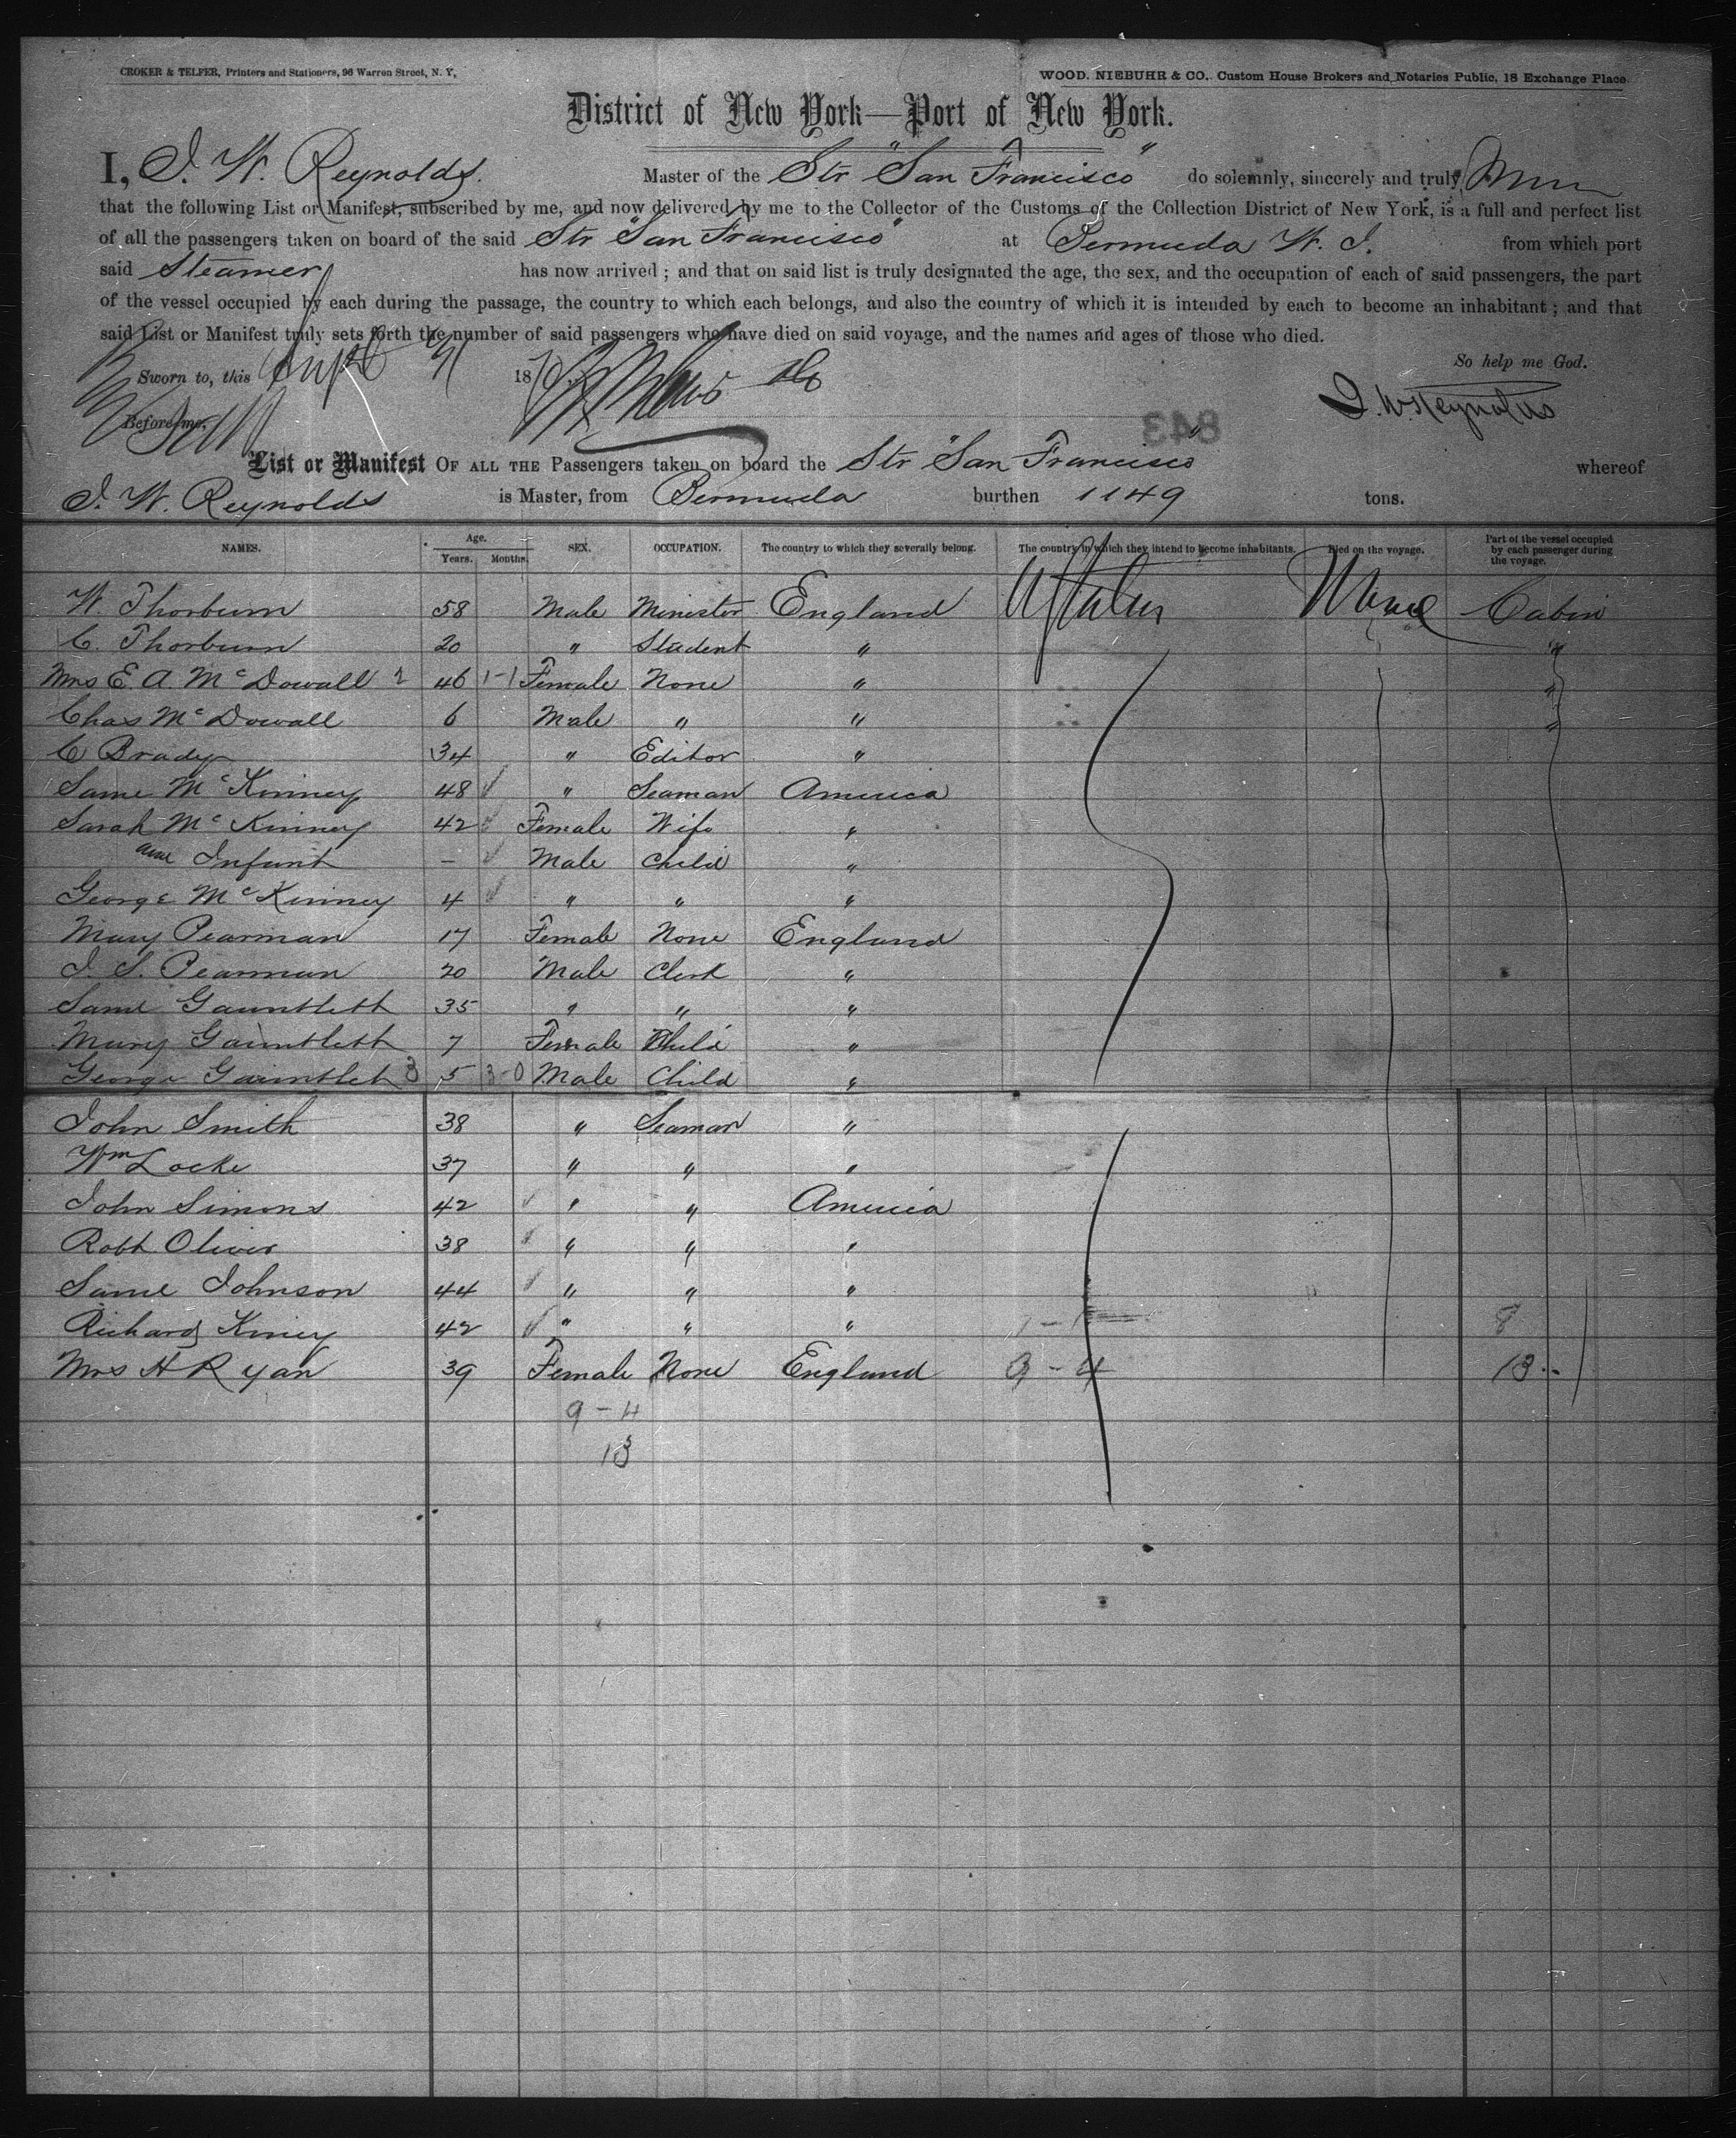 CROKER & TELFER, Printers and Stationers, 96 Warren Street, N. Y.
WOOD, NIEBUHR & CO., Custom House Brokers and Notaries Public, 18 Exchange Place
District of New York—Port of New York.
I, J. W. Reynolds. Master of the Str "San Francisco" do solemnly, sincerely and truly
that the following List or Manifest, subscribed by me, and now delivered by me to the Collector of the Customs of the Collection District of New York, is a full and perfect list
of all the passengers taken on board of the said Str "San Francisco" at Bermuda W. I. from which port
said Steamer has now arrived ; and that on said list is truly designated the age, the sex, and the occupation of each of said passengers, the part
of the vessel occupied by each during the passage, the country to which each belongs, and also the country of which it is intended by each to become an inhabitant ; and that
said List or Manifest truly sets forth the number of said passengers who have died on said voyage, and the names and ages of those who died.
So help me God.
Sworn to, this Sept 187
J. W. Reynolds
Before me,
843
List or Manifest OF ALL THE Passengers taken on board the Str "San Francisco" whereof
J. W. Reynolds is Master, from Bermuda burthen 1149 tons.
NAMES. Age. Years. Months. SEX. OCCUPATION. The country to which they severally belong. The country in which they intend to become inhabitants. Died on the voyage. Part of the vessel occupied by each passenger during the voyage.
W. Thorburn 58 Male Minister England None Cabin
C. Thorburn 20 " Student " "
Mrs E. A. McDowall 2 46 1-1 Female None " "
Chas McDowall 6 Male " " "
C Brady 34 " Editor "
Saml McKinney 48 " Seaman America
Sarah McKinney 42 Female Wife "
and Infant - Male Child "
George McKinney 4 " " "
Mary Pearman 17 Female None England
J. S. Pearman 20 Male Clerk "
Saml Gauntlett 35 " " "
Mary Gauntlett 7 Female Child "
George Gauntlet 3 5 3-0 Male Child "
John Smith 38 " Seaman "
Wm Locke 37 " " "
John Simons 42 " " America
Robt Oliver 38 " " "
Saml Johnson 44 " " "
Richard Kiney 42 " " " 1-1 8
Mrs H Ryan 39 Female None England 9-4 13
9-4
13